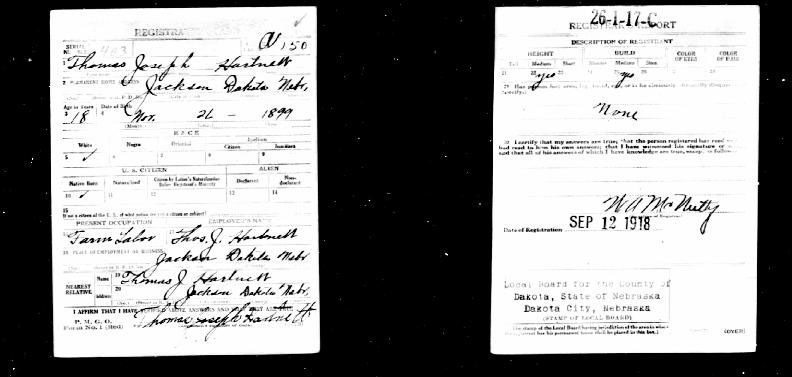 REGISTRA
SERIAL NO. 403
A 150
1 Thomas Joseph Hartnett
2 PERMANENT HOME ADDRESS
Jackson Dakota Nebr.
Age in Years Date of Birth
3 18 4 Nov. 26 - 1899
RACE
White Negro Oriental Indian
Citizen
5 ✓ 6 7 8 9
U. S. CITIZEN ALIEN
Native Born Naturalized Citizen by Father's Naturalization Before Registrant's Majority Declarant Non-declarant
10 ✓ 11 12 13 14
15
If not a citizen of the U. S. of what nation are you a citizen or subject?
PRESENT OCCUPATION EMPLOYER'S NAME
Farm Labor Thos. J. Hartnett
18 PLACE OF EMPLOYMENT OR BUSINESS
Jackson Dakota Nebr
NEAREST RELATIVE Name 19 Thomas J Hartnett
Address 20 Jackson Dakota Nebr.
I AFFIRM THAT I HAVE VERIFIED ABOVE ANSWERS AND THAT THEY ARE TRUE
P. M. G. O.
Form No. 1 (Red) Thomas Joseph Hartnett
26-1-17-C
REGISTRAR'S REPORT
DESCRIPTION OF REGISTRANT
HEIGHT BUILD COLOR OF EYES COLOR OF HAIR
Tall Medium Short Slender Medium Stout
21 22 yes 23 24 25 yes 26 27 28
29 Has person lost arm, leg, hand, eye, or is he obviously physically disqualified?
None
30 I certify that my answers are true; that the person registered has read
had read to him his own answers; that I have witnessed his signature or
and that all of his answers of which I have knowledge are true, except as follows
W A McNulty
Date of Registration SEP 12 1918
Local Board for the County of
Dakota, State of Nebraska
Dakota City, Nebraska
(STAMP OF LOCAL BOARD)
(The stamp of the Local Board having jurisdiction of the area in which the registrant has his permanent home shall be placed in this box.)
(OVER)